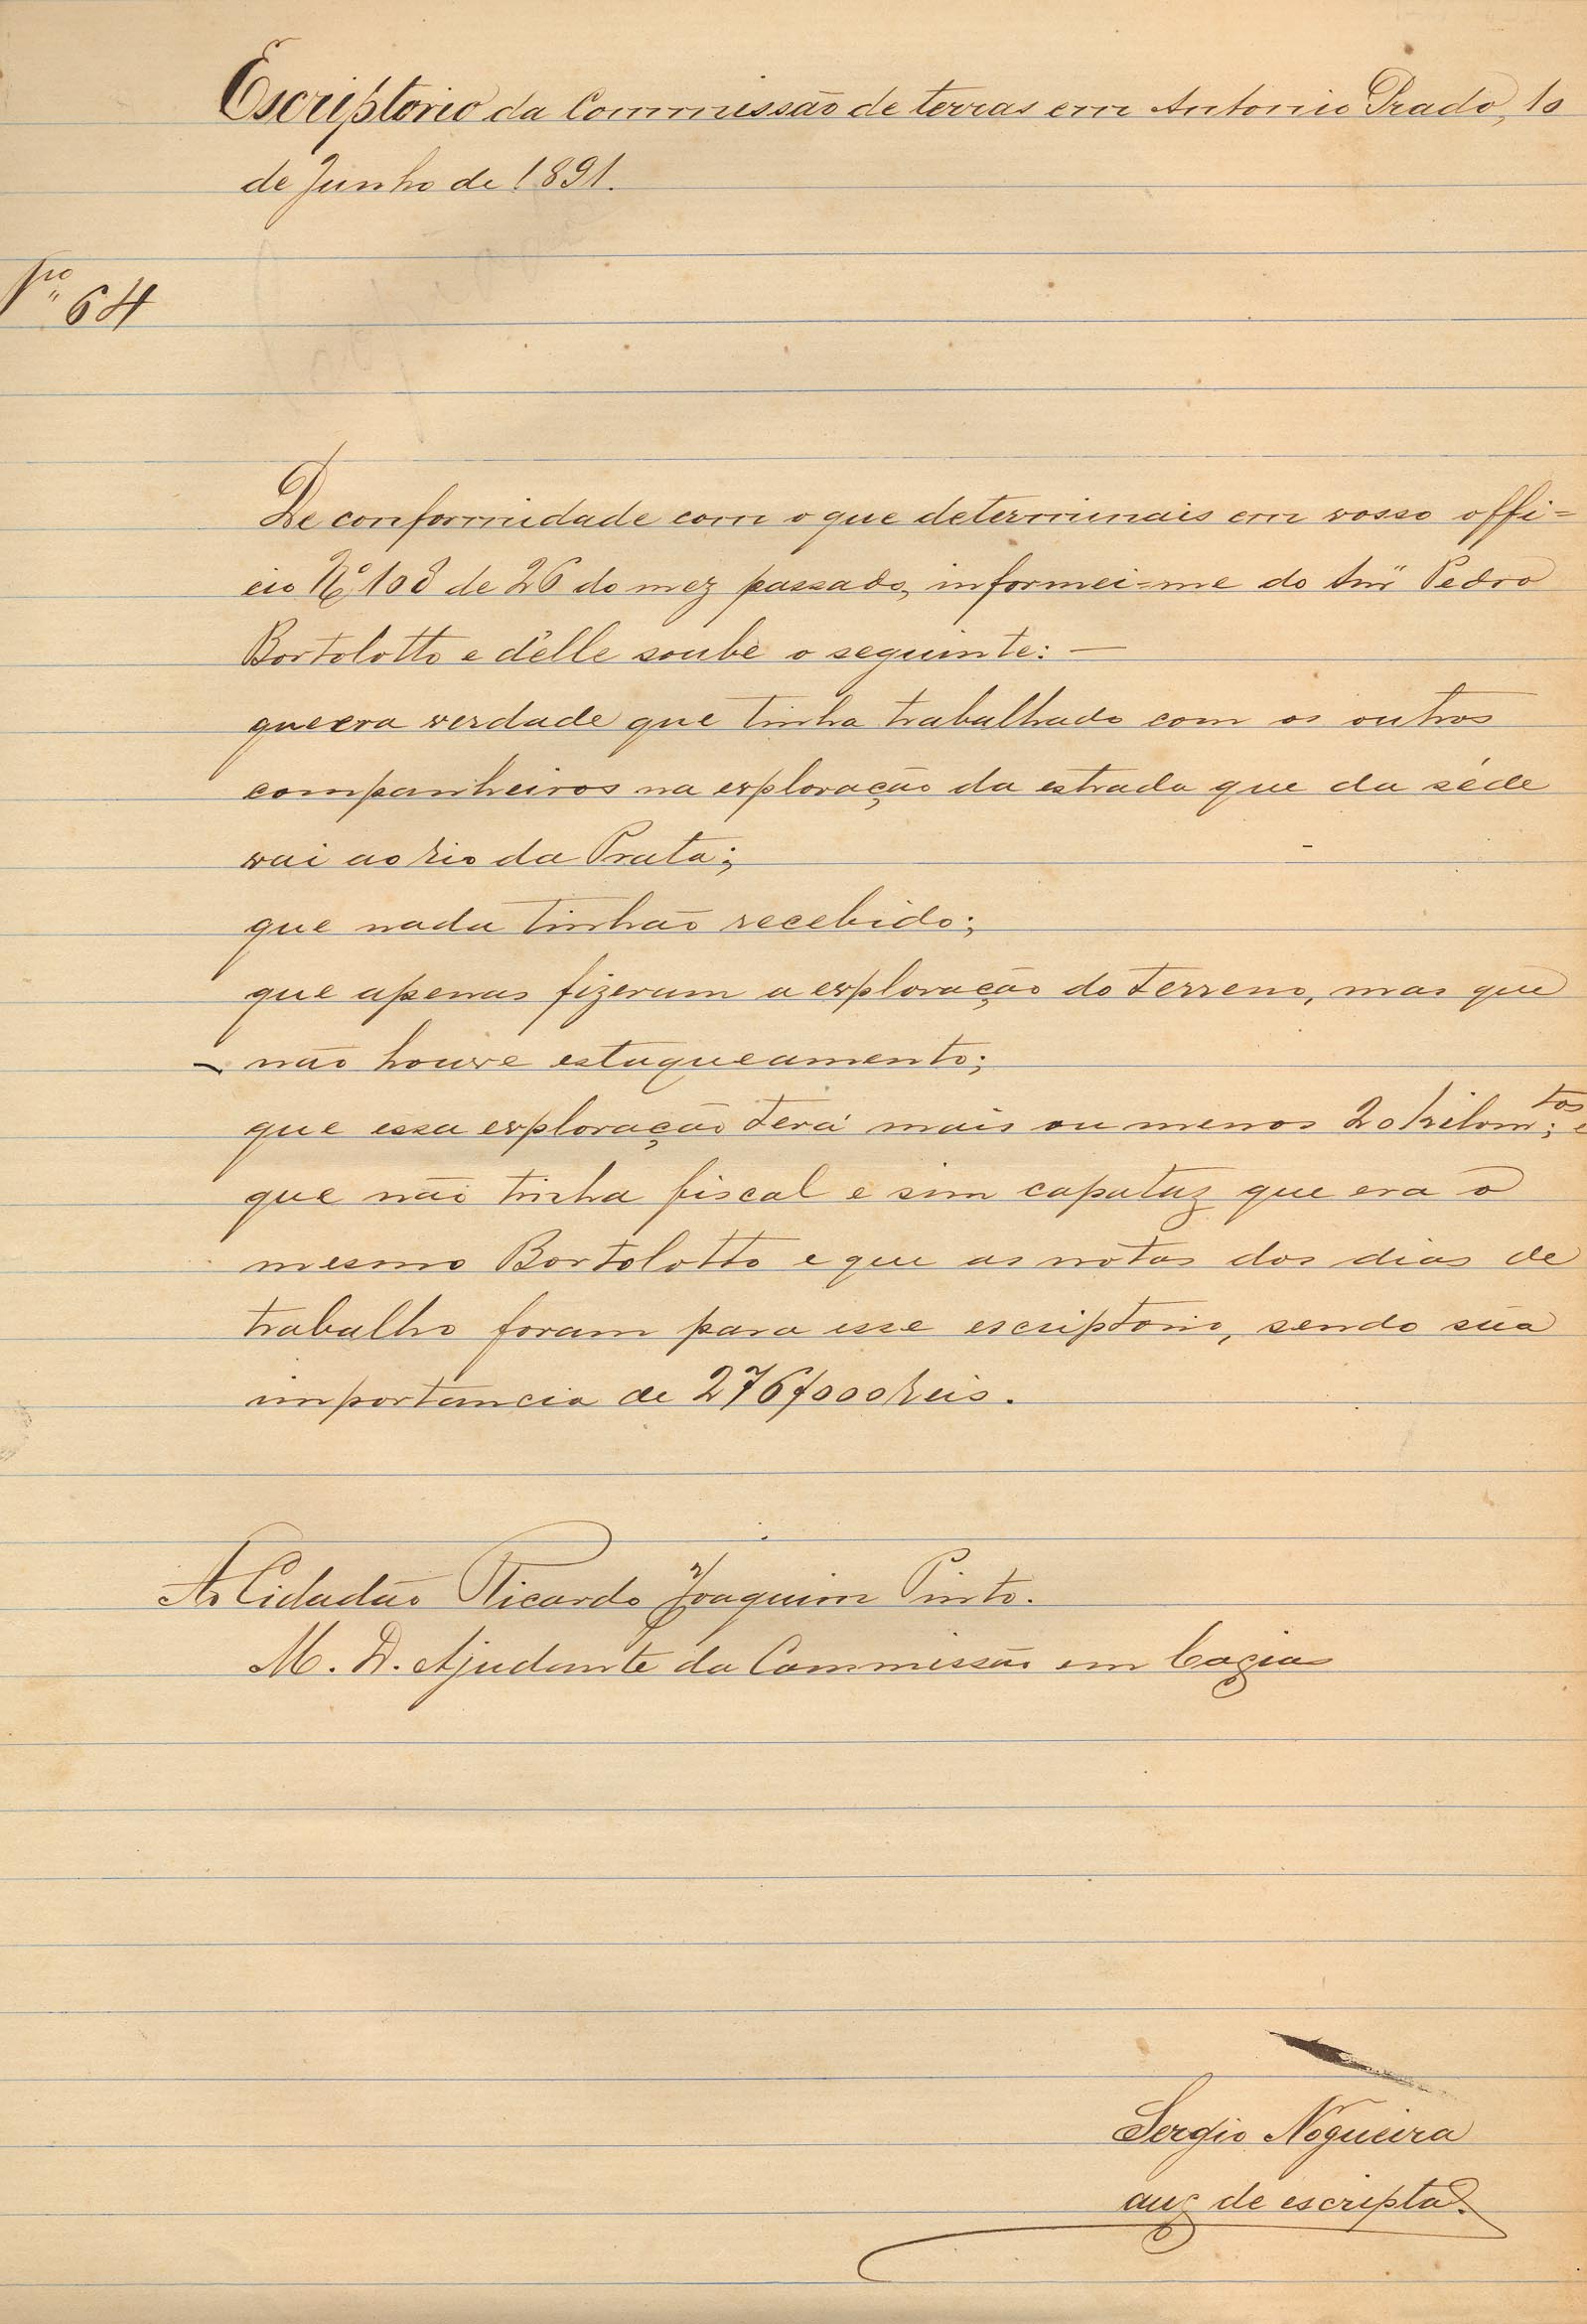 Escriptorio da Commissão de terras em Antonio Prado, 10
de Junho de 1891.
Nro 64
De conformidade com o que determinais em vosso offi=
cio Nº 108 de 26 do mez passado, informei=me do Snr Pedro
Bortolotto e d'elle soube o seguinte: —
que era verdade que tinha trabalhado com os outros
companheiros na exploração da estrada que da séde
vai ao rio da Prata;
que nada tinhão recebido;
que apenas fizeram a exploração do terreno, mas que
não houve estaqueamento;
que essa exploração terá mais ou menos 20 kilomtos; e
que não tinha fiscal e sim capataz que era o
mesmo Bortolotto e que as notas dos dias de
trabalho foram para esse escriptorio, sendo sua
importancia de 276$000 reis.
Ao Cidadão Ricardo Joaquim Pinto.
M. D. Ajudante da Commissão em Caxias
Sergio Nogueira
aux de escripta.